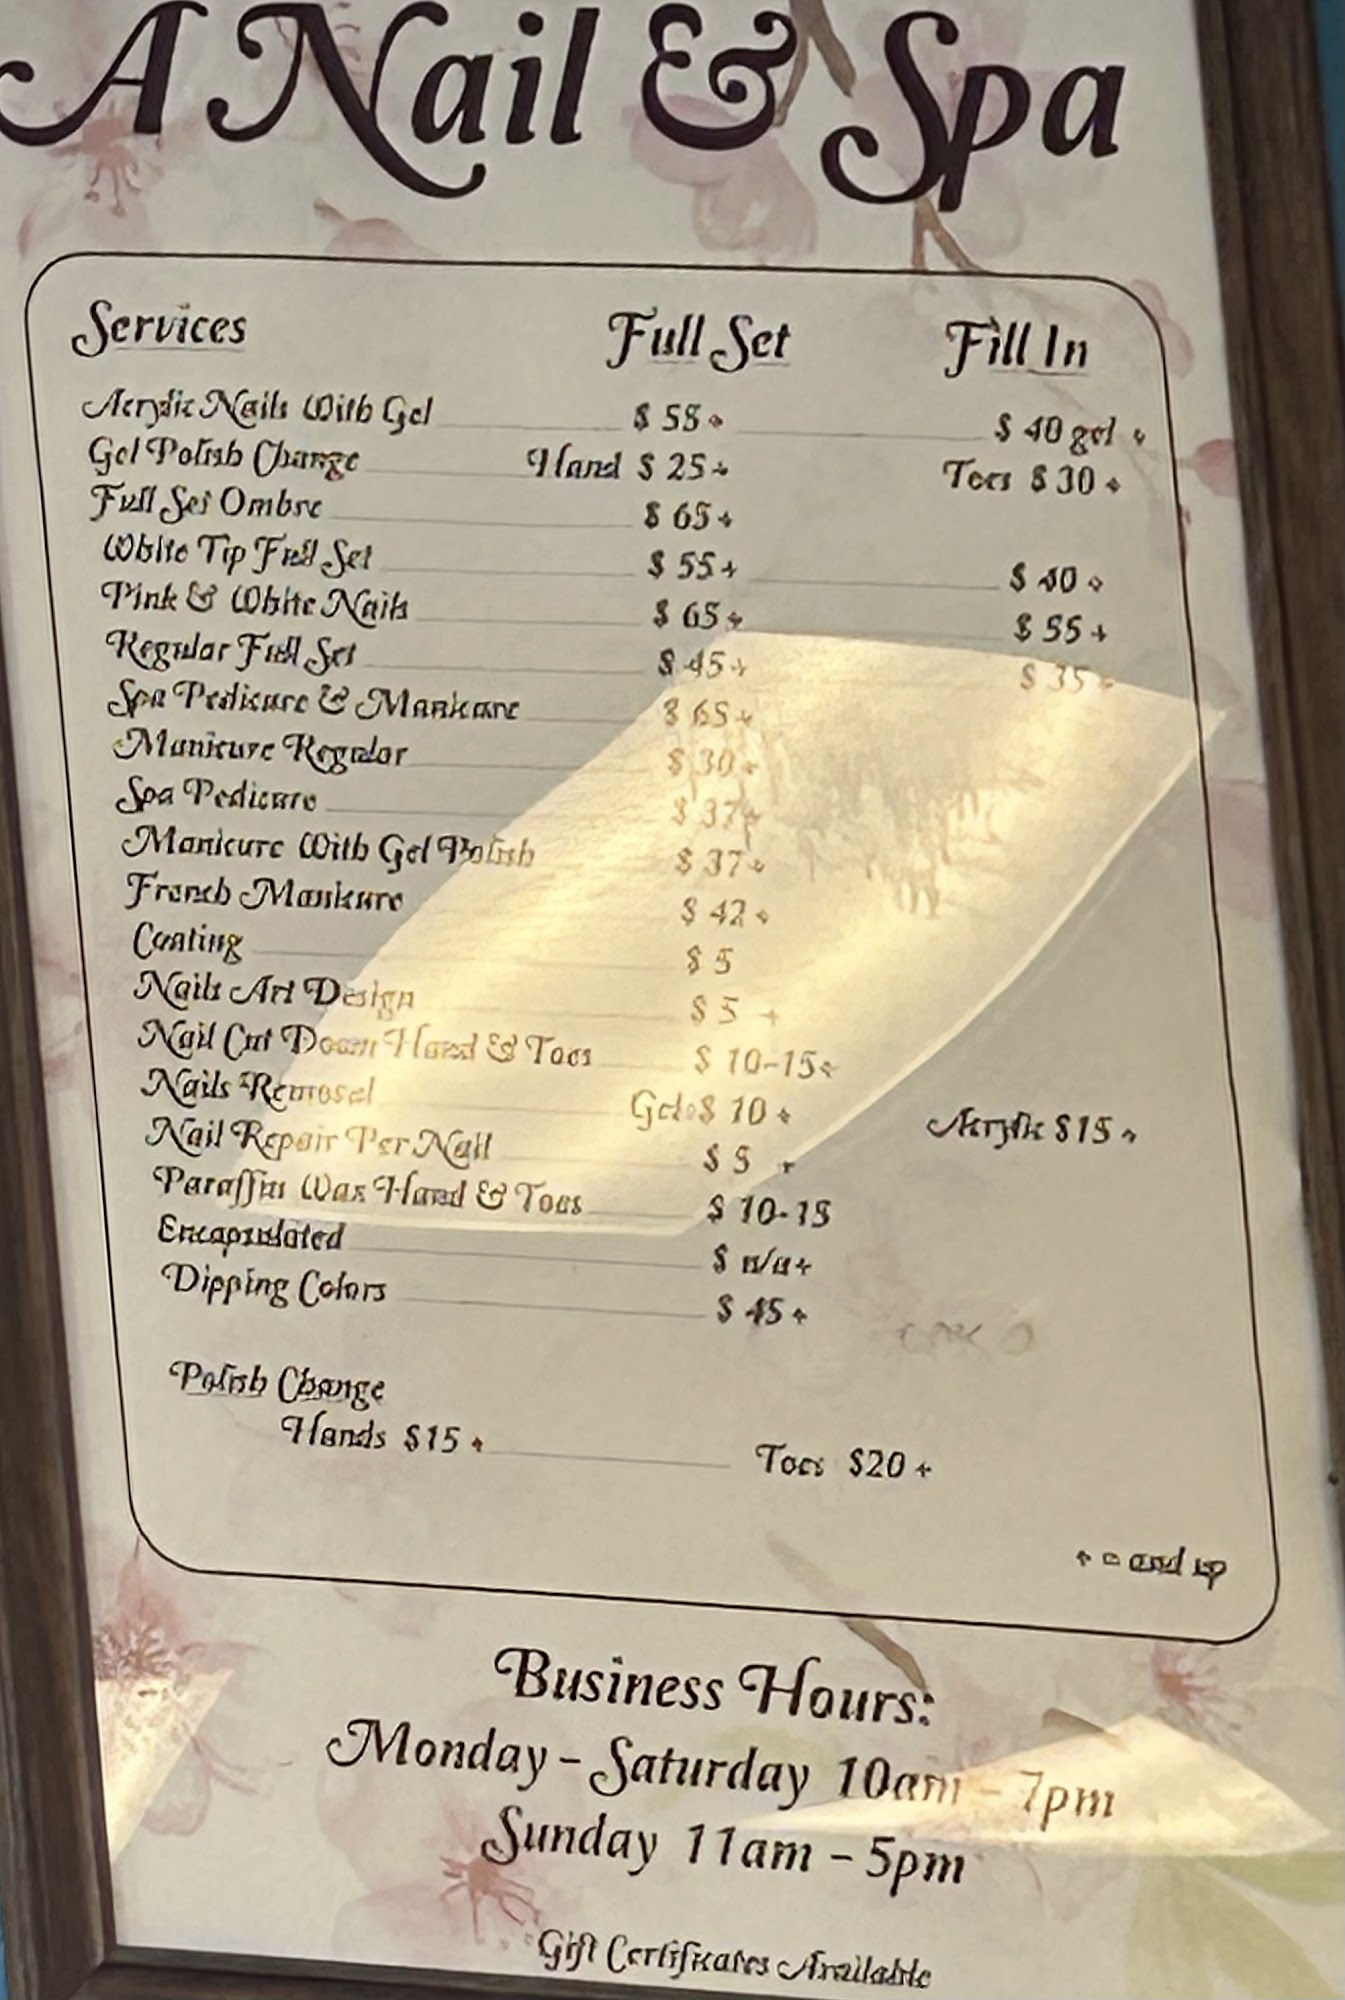 A Nail & Spa
Services Full Set Fill In
Acrylic Nails With Gel $ 55+ $ 40 gel +
Gel Polish Change Hand $ 25+ Toes $ 30+
Full Set Ombre $ 65+
White Tip Full Set $ 55+ $ 40+
Pink & White Nails $ 65+ $ 55+
Regular Full Set $ 45+ $ 35+
Spa Pedicure & Manicure $ 65+
Manicure Regular $ 30+
Spa Pedicure $ 37+
Manicure With Gel Polish $ 37+
French Manicure $ 42+
Coating $ 5
Nails Art Design $ 5 +
Nail Cut Down Hand & Toes $ 10-15+
Nails Removal $ 10 + Acrylic $15+
Nail Repair Per Nail $ 5 +
Paraffin Wax Hand & Toes $ 10-15
Encapsulated $ n/a+
Dipping Colors $ 45+
Polish Change
Hands $15+ Toes $20+
+ = and up
Business Hours:
Monday - Saturday 10am - 7pm
Sunday 11am - 5pm
Gift Certificates Available